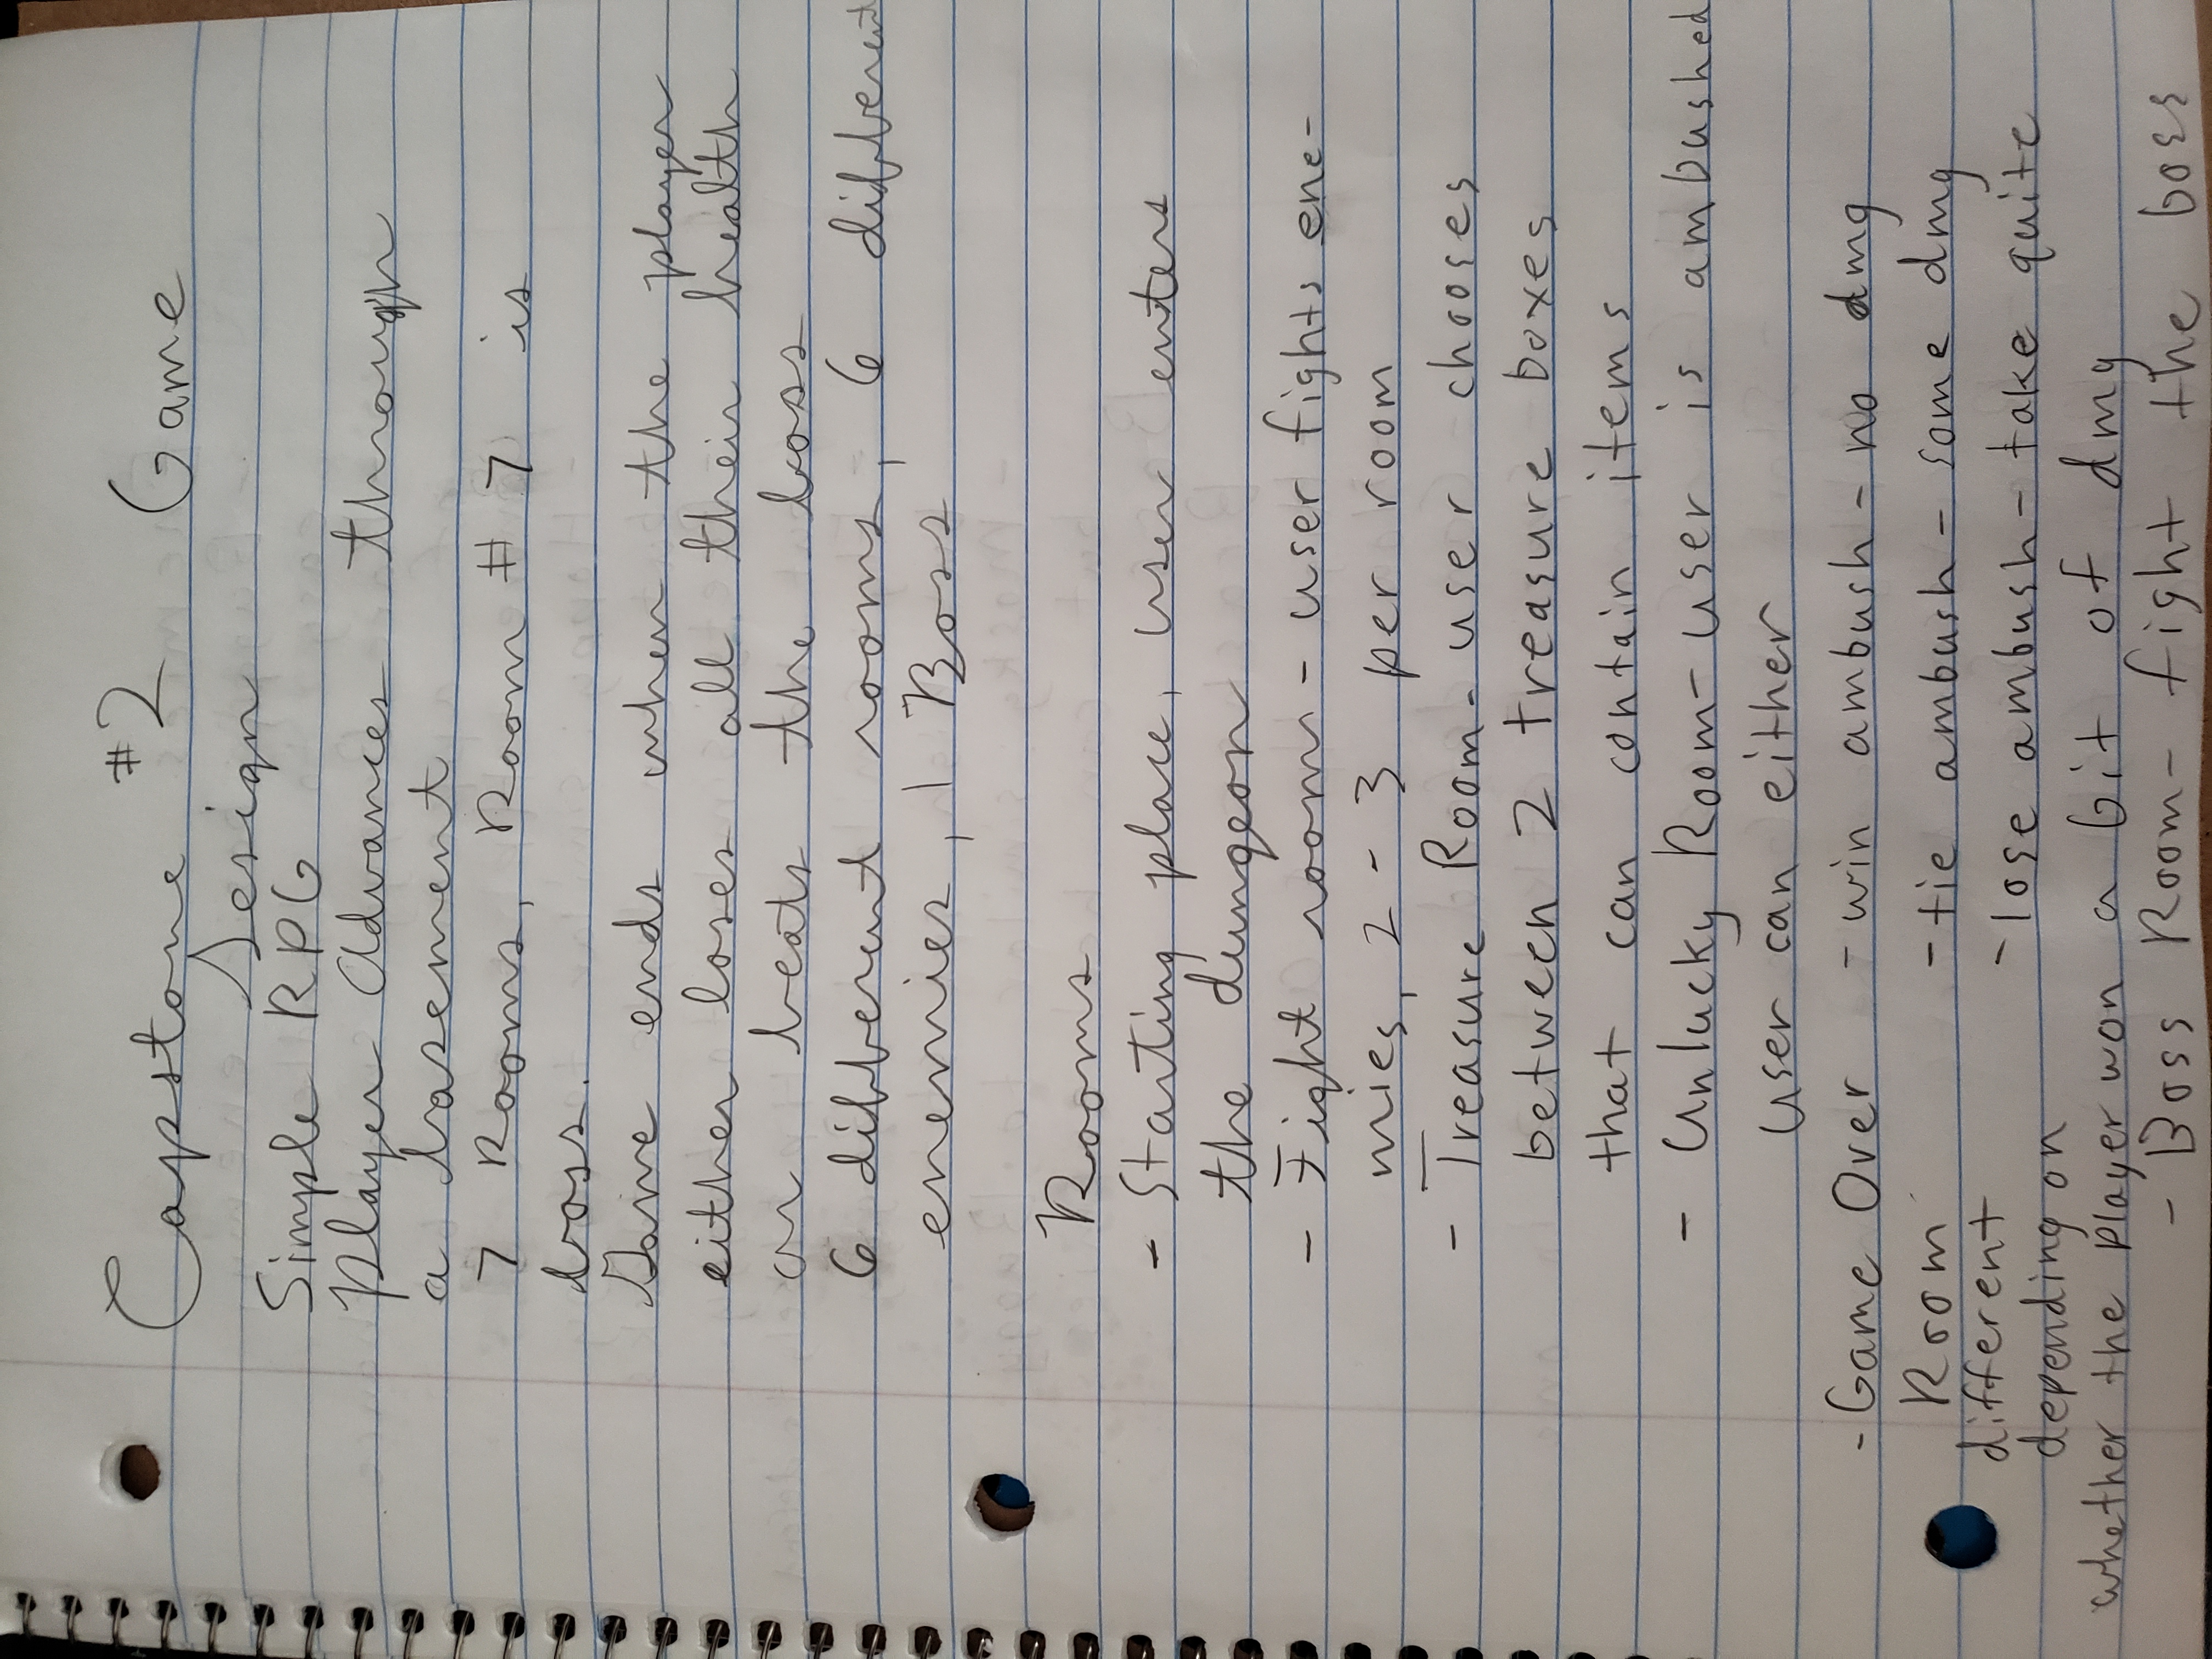 Capstone #2 Game
Design
Simple RPG
Player Advances through
a basement
7 Rooms, Room # 7 is
boss.
Game ends when the player
either loses all their health
or beats the boss
6 different rooms, 6 different
enemies, 1 Boss
Rooms
- Starting place, user enters
the dungeon
- Fight room - user fights ene-
mies, 2 - 3 per room
- Treasure Room - user chooses
between 2 treasure boxes
that can contain items
- Unlucky Room - user is ambushed
user can either
- win ambush - no dmg
- tie ambush - some dmg
- lose ambush - take quite
a bit of dmg
- Game Over
Room
different
depending on
whether the player won
- Boss Room - fight the boss